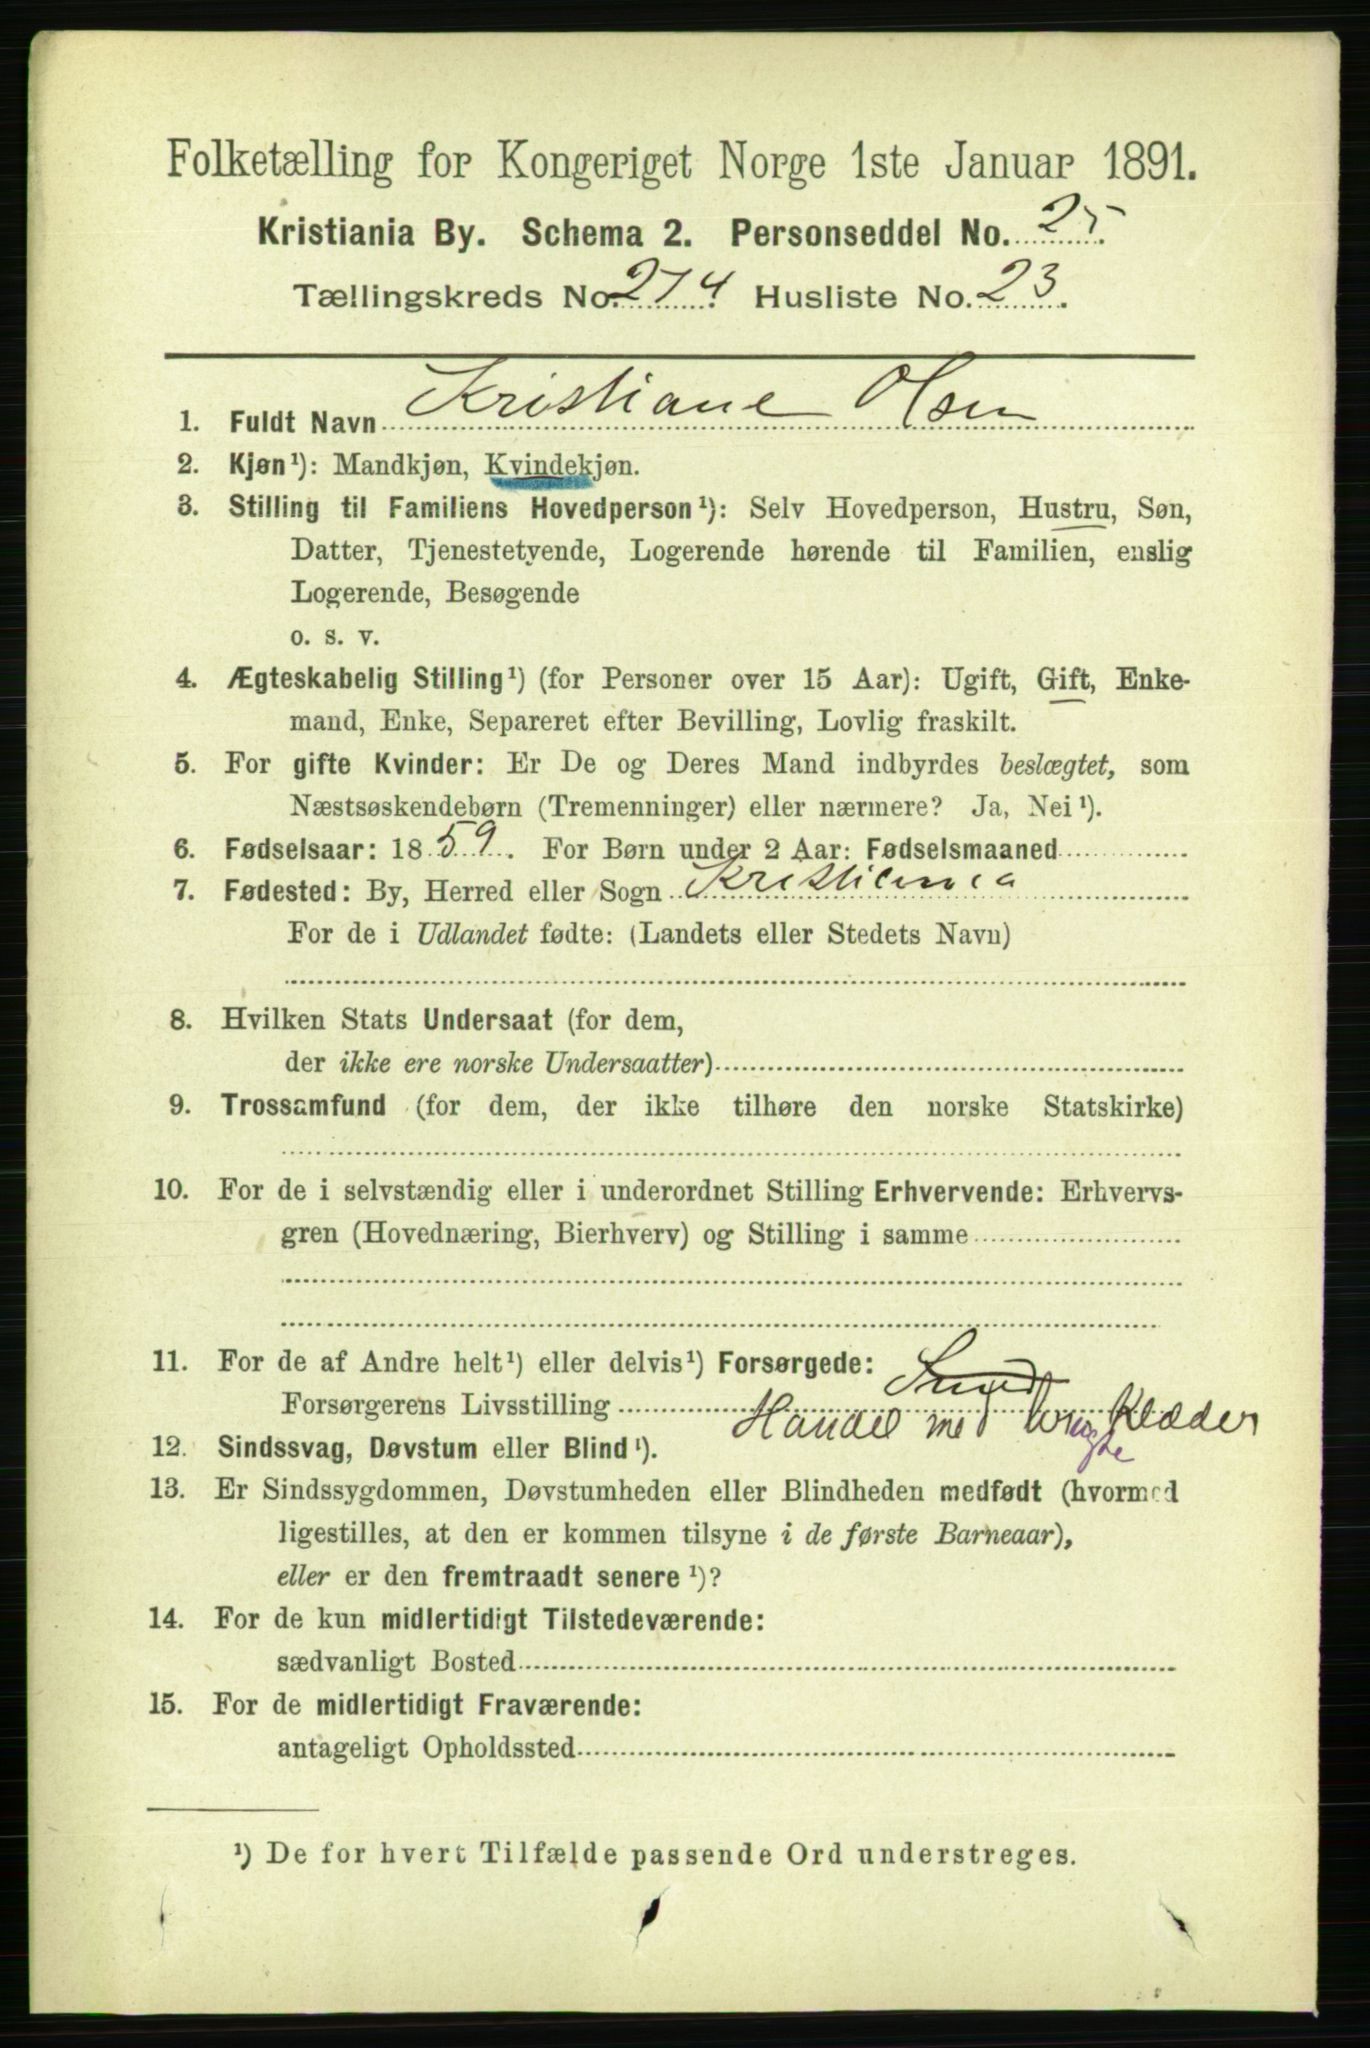 Folketælling for Kongeriget Norge 1ste Januar 1891.
Kristiania By. Schema 2. Personseddel No. 25.
Tællingskreds No. 214. Husliste No. 23.
1. Fuldt Navn Kristiane Olsen
2. Kjøn¹): Mandkjøn, Kvindekjøn.
3. Stilling til Familiens Hovedperson¹): Selv Hovedperson, Hustru, Søn,
Datter, Tjenestetyende, Logerende hørende til Familien, enslig
Logerende, Besøgende
o. s. v.
4. Ægteskabelig Stilling¹) (for Personer over 15 Aar): Ugift, Gift, Enke-
mand, Enke, Separeret efter Bevilling, Lovlig fraskilt.
5. For gifte Kvinder: Er De og Deres Mand indbyrdes beslægtet, som
Næstsøskendebørn (Tremenninger) eller nærmere? Ja, Nei¹).
6. Fødselsaar: 1859. For Børn under 2 Aar: Fødselsmaaned
7. Fødested: By, Herred eller Sogn Kristiania
For de i Udlandet fødte: (Landets eller Stedets Navn)
8. Hvilken Stats Undersaat (for dem,
der ikke ere norske Undersaatter)
9. Trossamfund (for dem, der ikke tilhøre den norske Statskirke)
10. For de i selvstændig eller i underordnet Stilling Erhvervende: Erhvervs-
gren (Hovednæring, Bierhverv) og Stilling i samme
11. For de af Andre helt¹) eller delvis¹) Forsørgede:
Forsørgerens Livsstilling Handel med brugte Klæder
12. Sindssvag, Døvstum eller Blind¹).
13. Er Sindssygdommen, Døvstumheden eller Blindheden medfødt (hvormed
ligestilles, at den er kommen tilsyne i de første Barneaar),
eller er den fremtraadt senere¹)?
14. For de kun midlertidigt Tilstedeværende:
sædvanligt Bosted
15. For de midlertidigt Fraværende:
antageligt Opholdssted
¹) De for hvert Tilfælde passende Ord understreges.